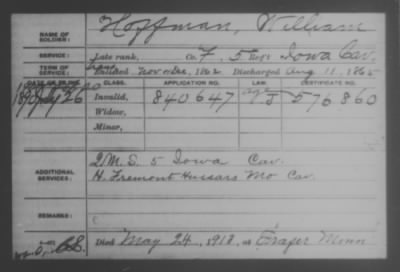 NAME OF SOLDIER: Hoffman, William
SERVICE: Late rank, Co. F, 5 Reg't Iowa Cav.
TERM OF SERVICE: Enlisted Nov or Dec, 1862 Discharged Aug 11, 1865
DATE OF FILING. CLASS. APPLICATION NO. LAW. CERTIFICATE NO.
1890 July 26 Invalid, 840647 576860
Widow,
Minor,
ADDITIONAL SERVICES: 2 M. S. 5 Iowa Cav.
H. Fremont Hussars Mo Cav.
REMARKS:
Died May 24, 1918, at Fraser Minn